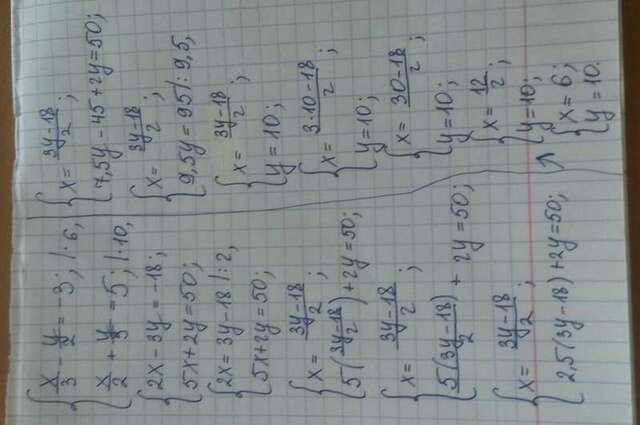 x/3 - y/2 = -3; |·6,
x/2 + y/5 = 5; |·10,
2x - 3y = -18;
5x + 2y = 50;
2x = 3y - 18 |:2,
5x + 2y = 50;
x = (3y-18)/2;
5((3y-18)/2) + 2y = 50;
x = (3y-18)/2;
5(3y-18)/2 + 2y = 50;
x = (3y-18)/2;
2,5(3y-18) + 2y = 50;
x = (3y-18)/2;
7,5y - 45 + 2y = 50;
x = (3y-18)/2;
9,5y = 95 |:9,5,
x = (3y-18)/2;
y = 10;
x = (3·10-18)/2;
y = 10;
x = (30-18)/2;
y = 10;
x = 12/2;
y = 10;
x = 6;
y = 10.